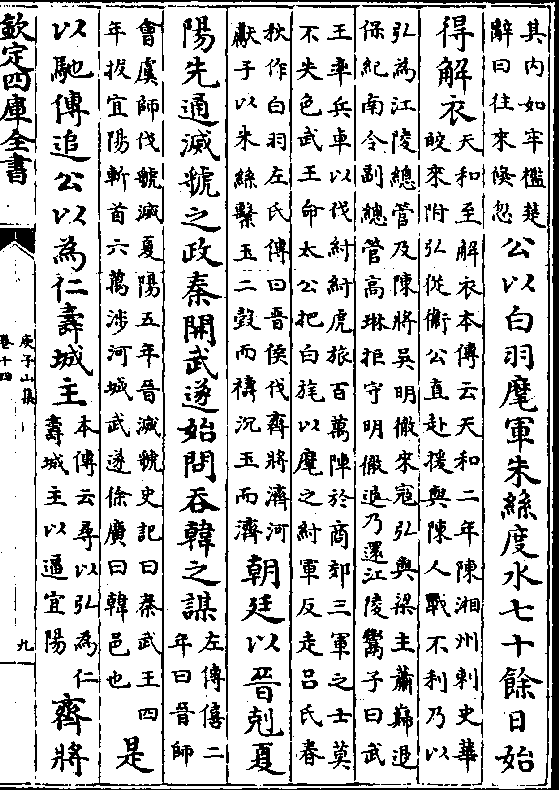 其内如牢檻楚
辭曰往來倏忽
公以白羽麾軍朱絲度水七十餘日始
得解衣
天和至解衣本傳云天和二年陳湘州刺史華
皎來附弘從衛公直赴援與陳人戰不利乃以
弘為江陵總管及陳將吳明徹來寇弘與梁主蕭巋退
保紀南令副總管高琳拒守明徹退乃還江陵鬻子曰武
王率兵車以伐紂紂虎旅百萬陣於商郊三軍之士莫
不失色武王命太公把白旄以麾之紂軍反走呂氏春
秋作白羽左氏傳曰晉侯伐齊將濟河
獻子以朱絲繫玉二瑴而禱沉玉而濟
朝廷以晉剋夏
陽先通滅虢之政秦開武遂始問吞韓之謀
左傳僖二
年曰晉師
會虞師伐虢滅夏陽五年晉滅虢史記曰秦武王四
年拔宜陽斬首六萬涉河城武遂徐廣曰韓邑也
是
以馳傳追公以為仁壽城主
本傳云尋以弘為仁
壽城主以逼宜陽
齊將
欽定四庫全書
庾子山集
卷十四
九